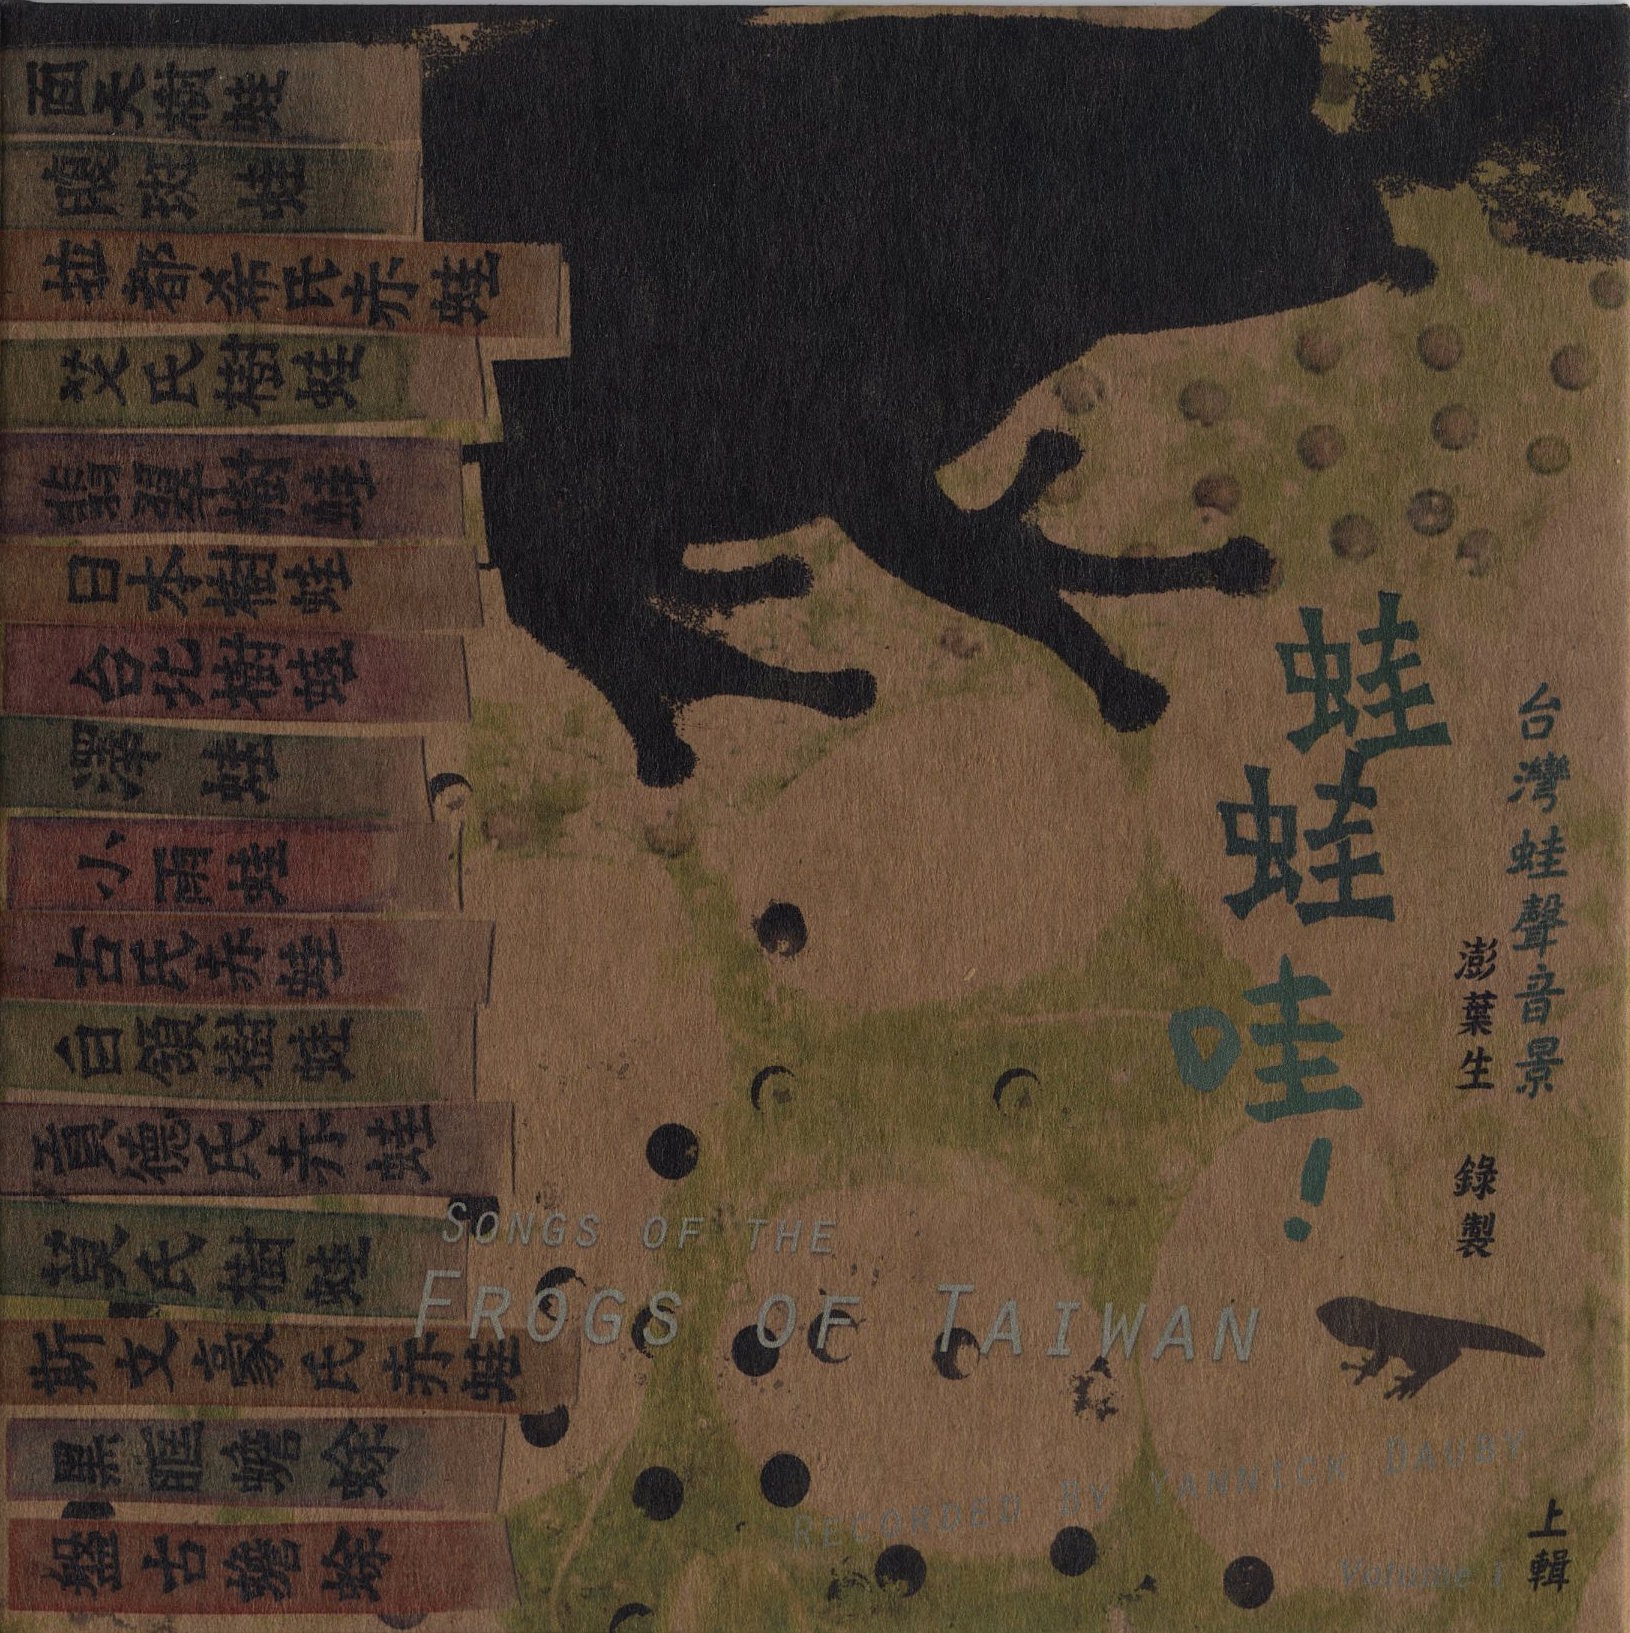 面天樹蛙
腹斑蛙
拉都希氏赤蛙
艾氏樹蛙
翡翠樹蛙
日本樹蛙
台北樹蛙
澤蛙
小雨蛙
古氏赤蛙
白頷樹蛙
貢德氏赤蛙
莫氏樹蛙
斯文豪氏赤蛙
黑眶蟾蜍
盤古蟾蜍
台灣蛙聲音景
蛙蛙哇!
澎葉生 錄製
SONGS OF THE
FROGS OF TAIWAN
RECORDED BY YANNICK DAUBY
Volume I
上輯